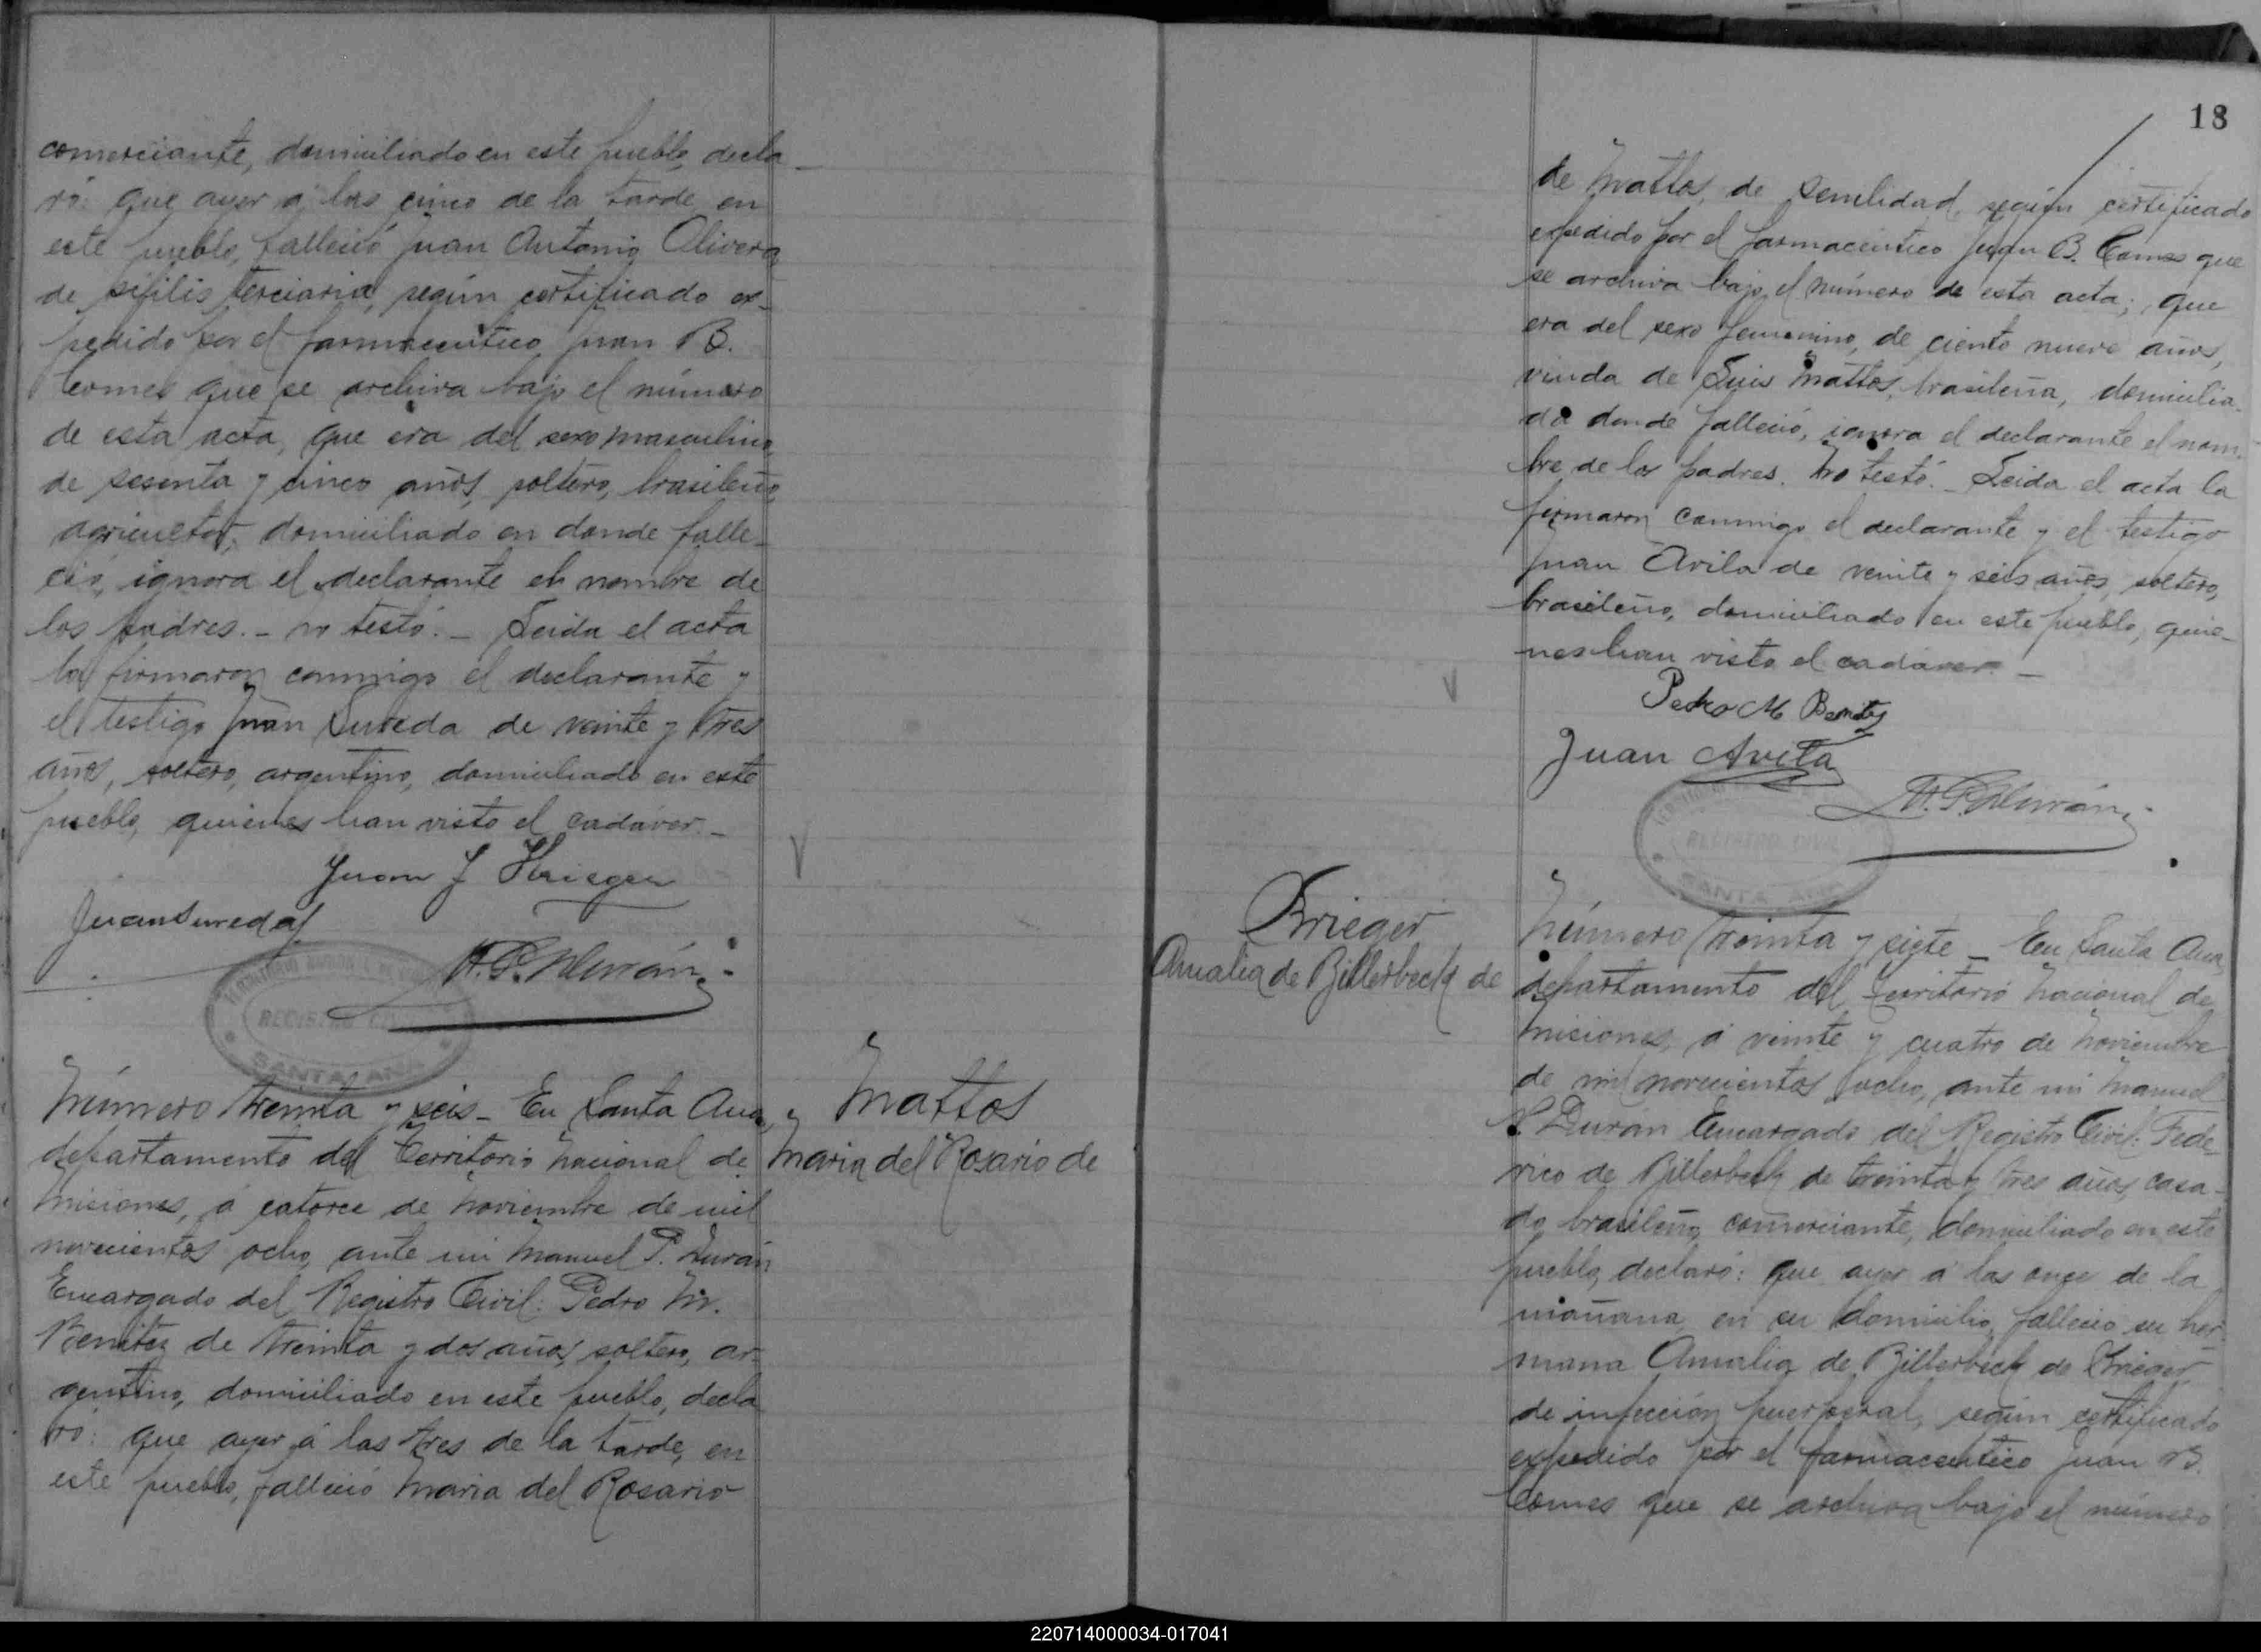 comerciante, domiciliado en este pueblo, decla
ró: que ayer á las cinco de la tarde, en
este pueblo, falleció Juan Antonio Olivera
de sifilis terciaria, según certificado ex-
pedido por el farmacéutico Juan B.
Comes que se archiva bajo el número
de esta acta, que era del sexo masculino,
de sesenta y cinco años, soltero, brasileño,
agricultor, domiciliado en donde falle-
ció, ignora el declarante el nombre de
los padres. - no testó. - Leida el acta
la firmaron conmigo el declarante y
el testigo Juan Sureda de veinte y tres
años, soltero, argentino, domiciliado en este
pueblo, quienes han visto el cadáver. -
Juan J Krieger
Juan Sureda
M. P. Durán
REGISTRO CIVIL
SANTA ANA
Número treinta y seis - En Santa Ana,
departamento del Territorio Nacional de
Misiones, á catorce de Noviembre de mil
novecientos ocho, ante mi Manuel P. Durán
Encargado del Registro Civil: Pedro M.
Benitez de treinta y dos años, soltero, ar-
gentino, domiciliado en este pueblo, decla
ró: que ayer á las tres de la tarde, en
este pueblo, falleció Maria del Rosario
Mattos
Maria del Rosario de
18
de Mattos, de senilidad, según certificado
expedido por el farmacéutico Juan B. Comes que
se archiva bajo el número de esta acta; que
era del sexo femenino, de ciento nueve años,
viuda de Luis Mattos, brasileña, domicilia-
da donde falleció, ignora el declarante el nom-
bre de los padres. No testó. - Leida el acta la
firmaron conmigo el declarante y el testigo
Juan Avila de veinte y seis años, soltero,
brasileño, domiciliado en este pueblo, quie-
nes han visto el cadáver. -
Pedro M Benitez
Juan Avila
M. P. Durán
REGISTRO CIVIL
SANTA ANA
Krieger
Amalia de Billerbeck de
Número treinta y siete - En Santa Ana,
departamento del Territorio Nacional de
Misiones, á veinte y cuatro de Noviembre
de mil novecientos ocho, ante mi Manuel
P. Durán Encargado del Registro Civil: Fede-
rico de Billerbeck de treinta y tres años, casa-
do, brasileño, comerciante, domiciliado en este
pueblo, declaró: que ayer á las once de la
mañana, en su domicilio, falleció su her-
mana Amalia de Billerbeck de Krieger,
de infección puerperal, según certificado
expedido por el farmacéutico Juan B.
Comes que se archiva bajo el número
220714000034-017041